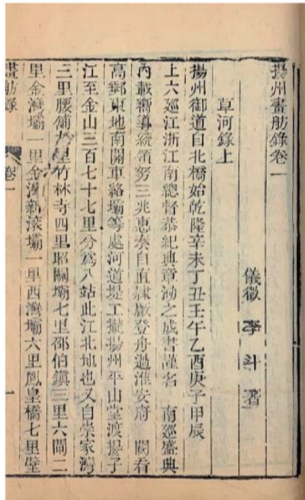 揚州畫舫錄卷一
儀徵 李斗 著
草河錄上
揚州御道自北橋始乾隆辛未丁丑壬午乙酉庚子甲辰
上六巡江浙江南總督恭紀典章泐之成書謹名 南巡盛典
內載嚮導統領努三兆惠奏自直隸廠登舟過淮安府 閱看
高郵東地南關車絡壩等處河道堤工攏揚州平山堂渡揚子
江至金山三百七十七里分爲八站此江北地也又自崇家灣
三里腰鋪九里竹林寺四里昭關壩七里邵伯鎮三里六閘二
里金灣壩一里金灣新滾壩一里西灣壩六里鳳皇橋七里壁
畫舫錄 卷一 一